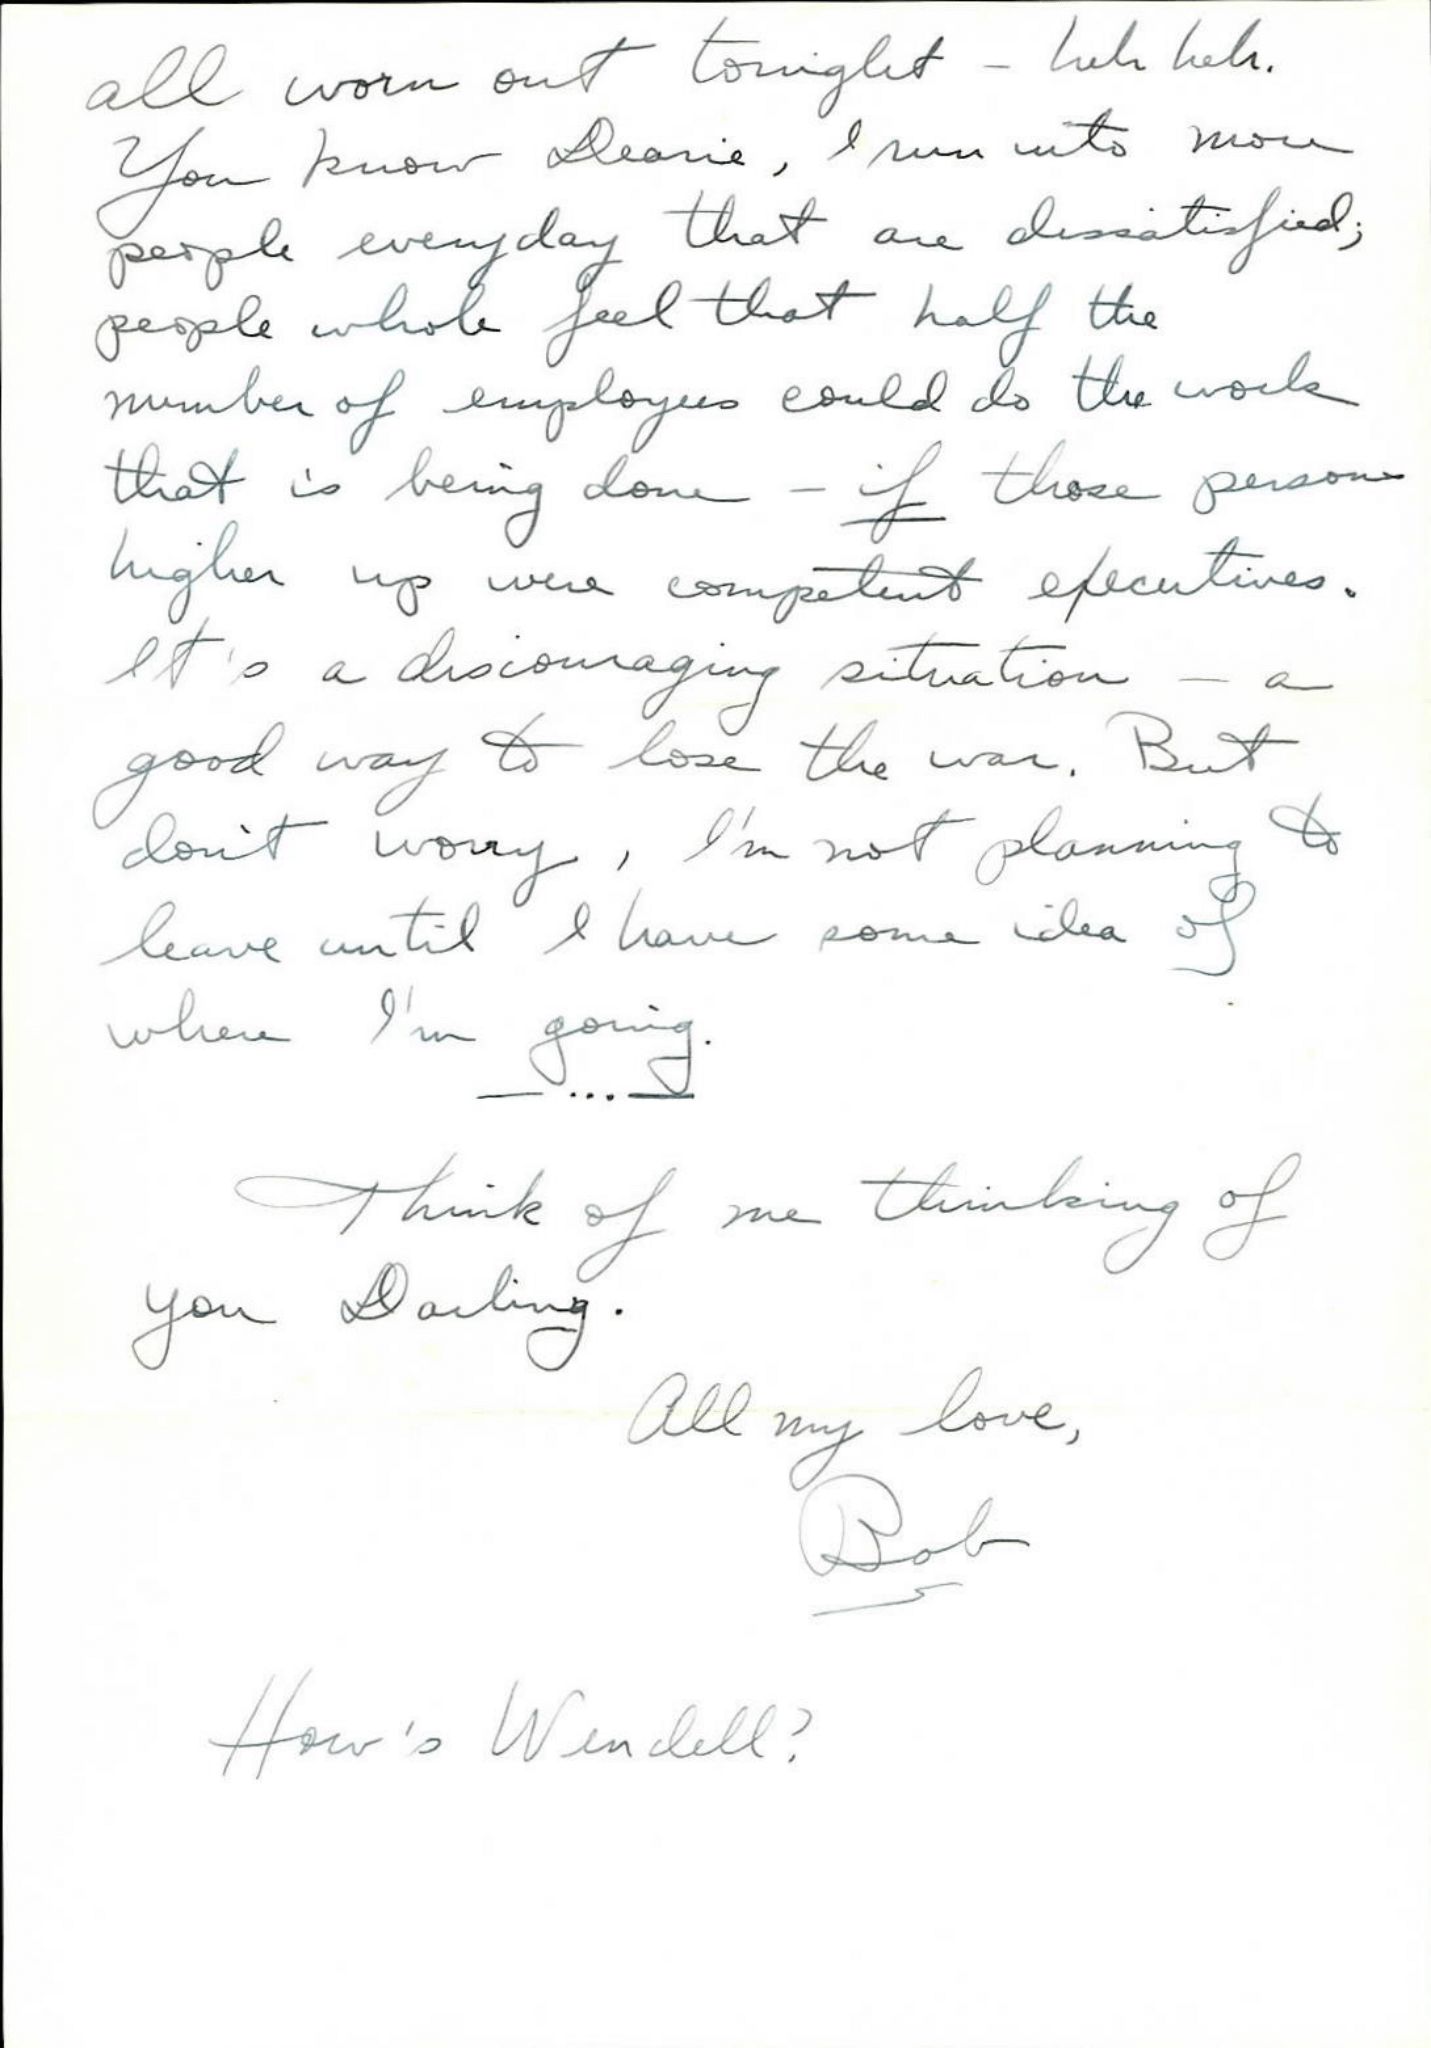 all worn out tonight – heh heh.
You know Dearie, I run into more
people everyday that are dissatisfied;
people whole feel that half the
number of employees could do the work
that is being done – if those persons
higher up were competent executives.
It's a discouraging situation – a
good way to lose the war. But
don't worry, I'm not planning to
leave until I have some idea of
where I'm going.
— ... —
Think of me thinking of
you Darling.
All my love,
Bob
How's Wendell?